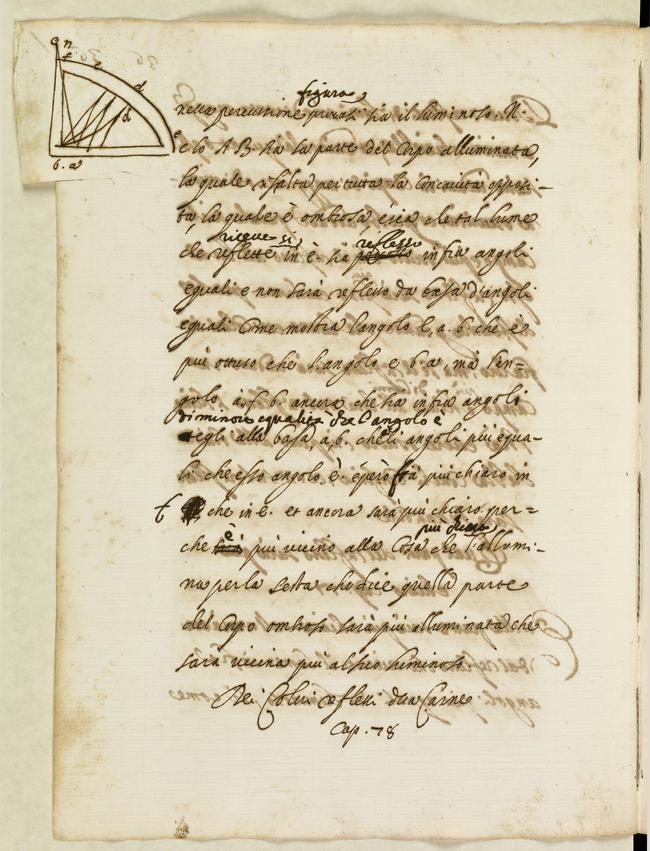 n
f e d
d
b. a
figura
nella percussione ha il luminoso. Il
c lo A B. ha la parte del Corpo alluminata,
la quale risalta per tutta la concavità opposi-
ta, la quale è ombrosa e sia che tal lume
riceve si, reflesso
che reflette in è. ha infra angoli
equali e non sarà reflesso da basa d'angoli
equali Come mostra l'angolo l, a. b. che è
più ottuso che l'angolo e b. a, ma l'an-
golo a. f. b. ancora che ha infra angoli
di minore equalità che l'angolo è
egli alla basa, a, b. che li angoli più equa-
li che esso angolo è. e però sta più chiaro in
f che in e. et ancora sarà più chiaro. per-
è più chiara
che più vicino alla Cosa che l'allumi-
na per la sesta che dice quella parte
del Corpo ombroso sarà più alluminata che
sarà vicina più al suo luminoso.
Dei Colori reflessi dua Carne
Cap. 78